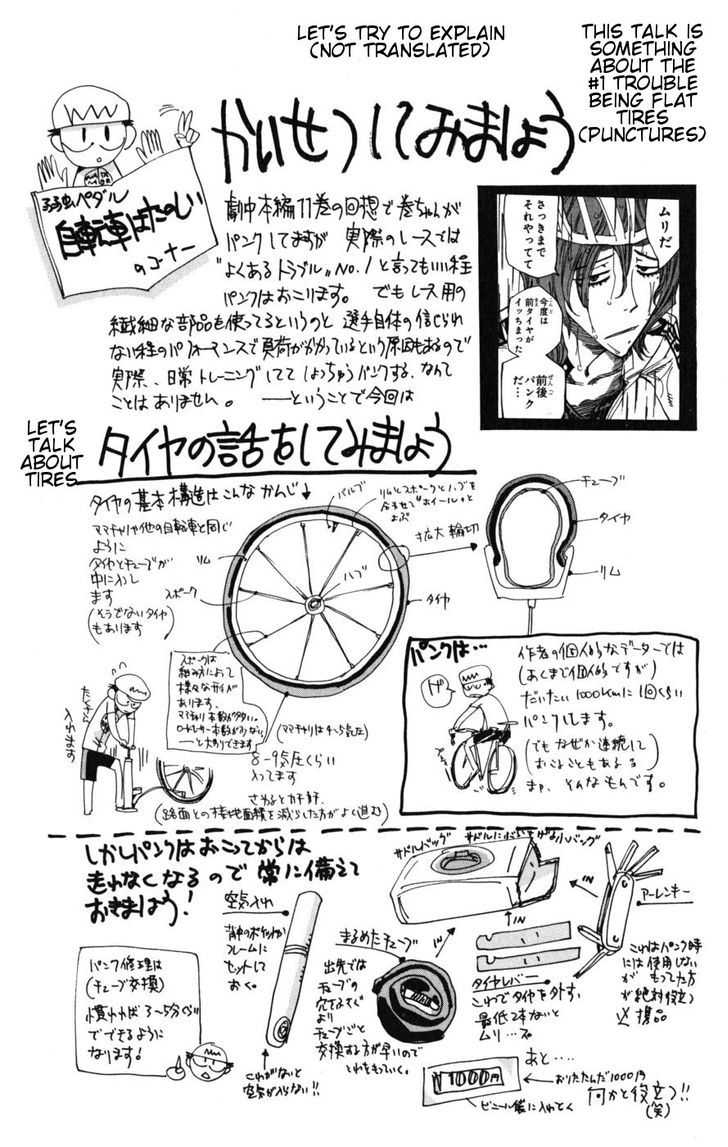 LET'S TRY TO EXPLAIN
(NOT TRANSLATED)
THIS TALK IS
SOMETHING
ABOUT THE
#1 TROUBLE
BEING FLAT
TIRES
(PUNCTURES)
かいせつしてみましょう
弱虫ペダル
自転車はたのしい
のコーナー
劇中本編11巻の回想で巻ちゃんが
パンクしてますが 実際のレースでは
"よくあるトラブル"No.1と言ってもいい程
パンクはおこります。 でもレース用の
繊細な部品を使ってるというのと 選手自体の信じられ
ない程のパフォーマンスで負荷がかかっているという原因もあるので
実際、日常トレーニングしてて しょっちゅうパンクする、なんて
ことはありません。 ――ということで今回は
ムリだ
さっきまで
それやってて
今度は
前タイヤが
イッちまった
前後
パンク
だ…
LET'S
TALK
ABOUT
TIRES
タイヤの話をしてみましょう
タイヤの基本構造はこんなかんじ↓
ママチャリや他の自転車と同じ
ように
タイヤとチューブが
中に入りし
ます
(そうでないタイヤ
もあります)
バルブ
リムとスポークとハブを
合わせて"ホイール"と
よぶ
リム
スポーク
ハブ
タイヤ
拡大 輪切
チューブ
タイヤ
リム
スポークは
組み方によって
様々なタイプが
あります。
ママチャリ本数が多い。
ロードレーサー本数が少ない
――と大別できます
(ママチャリは4~5気圧)
8-9気圧くらい
入ってます
さわるとカチカチ
(路面との接地面積を減らした方がよく進む)
たくさん
入れます
パンクは…
作者の個人的なデーターでは
(あくまで個人的ですが)
だいたい1000kmに1回くらい
パンクします。
(でもなぜか連続して
おこることもある)
まぁ、そんなもんです。
しかしパンクはおこってからは
走れなくなるので 常に備えて
おきましょう!
パンク修理は
(チューブ交換)
慣れれば3~5分くらい
でできるように
なります!
空気入れ
背中のポケットか
フレームに
セットして
おく。
これがないと
空気が入らない!!
まるめたチューブ
出先では
チューブの
穴をふさぐ
より
チューブごと
交換する方が早いので
これをもっていく。
サドルバッグ
サドルにぶらさげる小バッグ
IN
IN
IN
タイヤレバー
これでタイヤを外す。
最低2本ないと
ムリ…
アーレンキー
これはパンク時
には使用しない
が もってた方
が絶対役立つ
携品
あと…
¥1000円
おりたたんだ1000円
ビニール袋に入れとく
何かと役立つ!!
(笑)